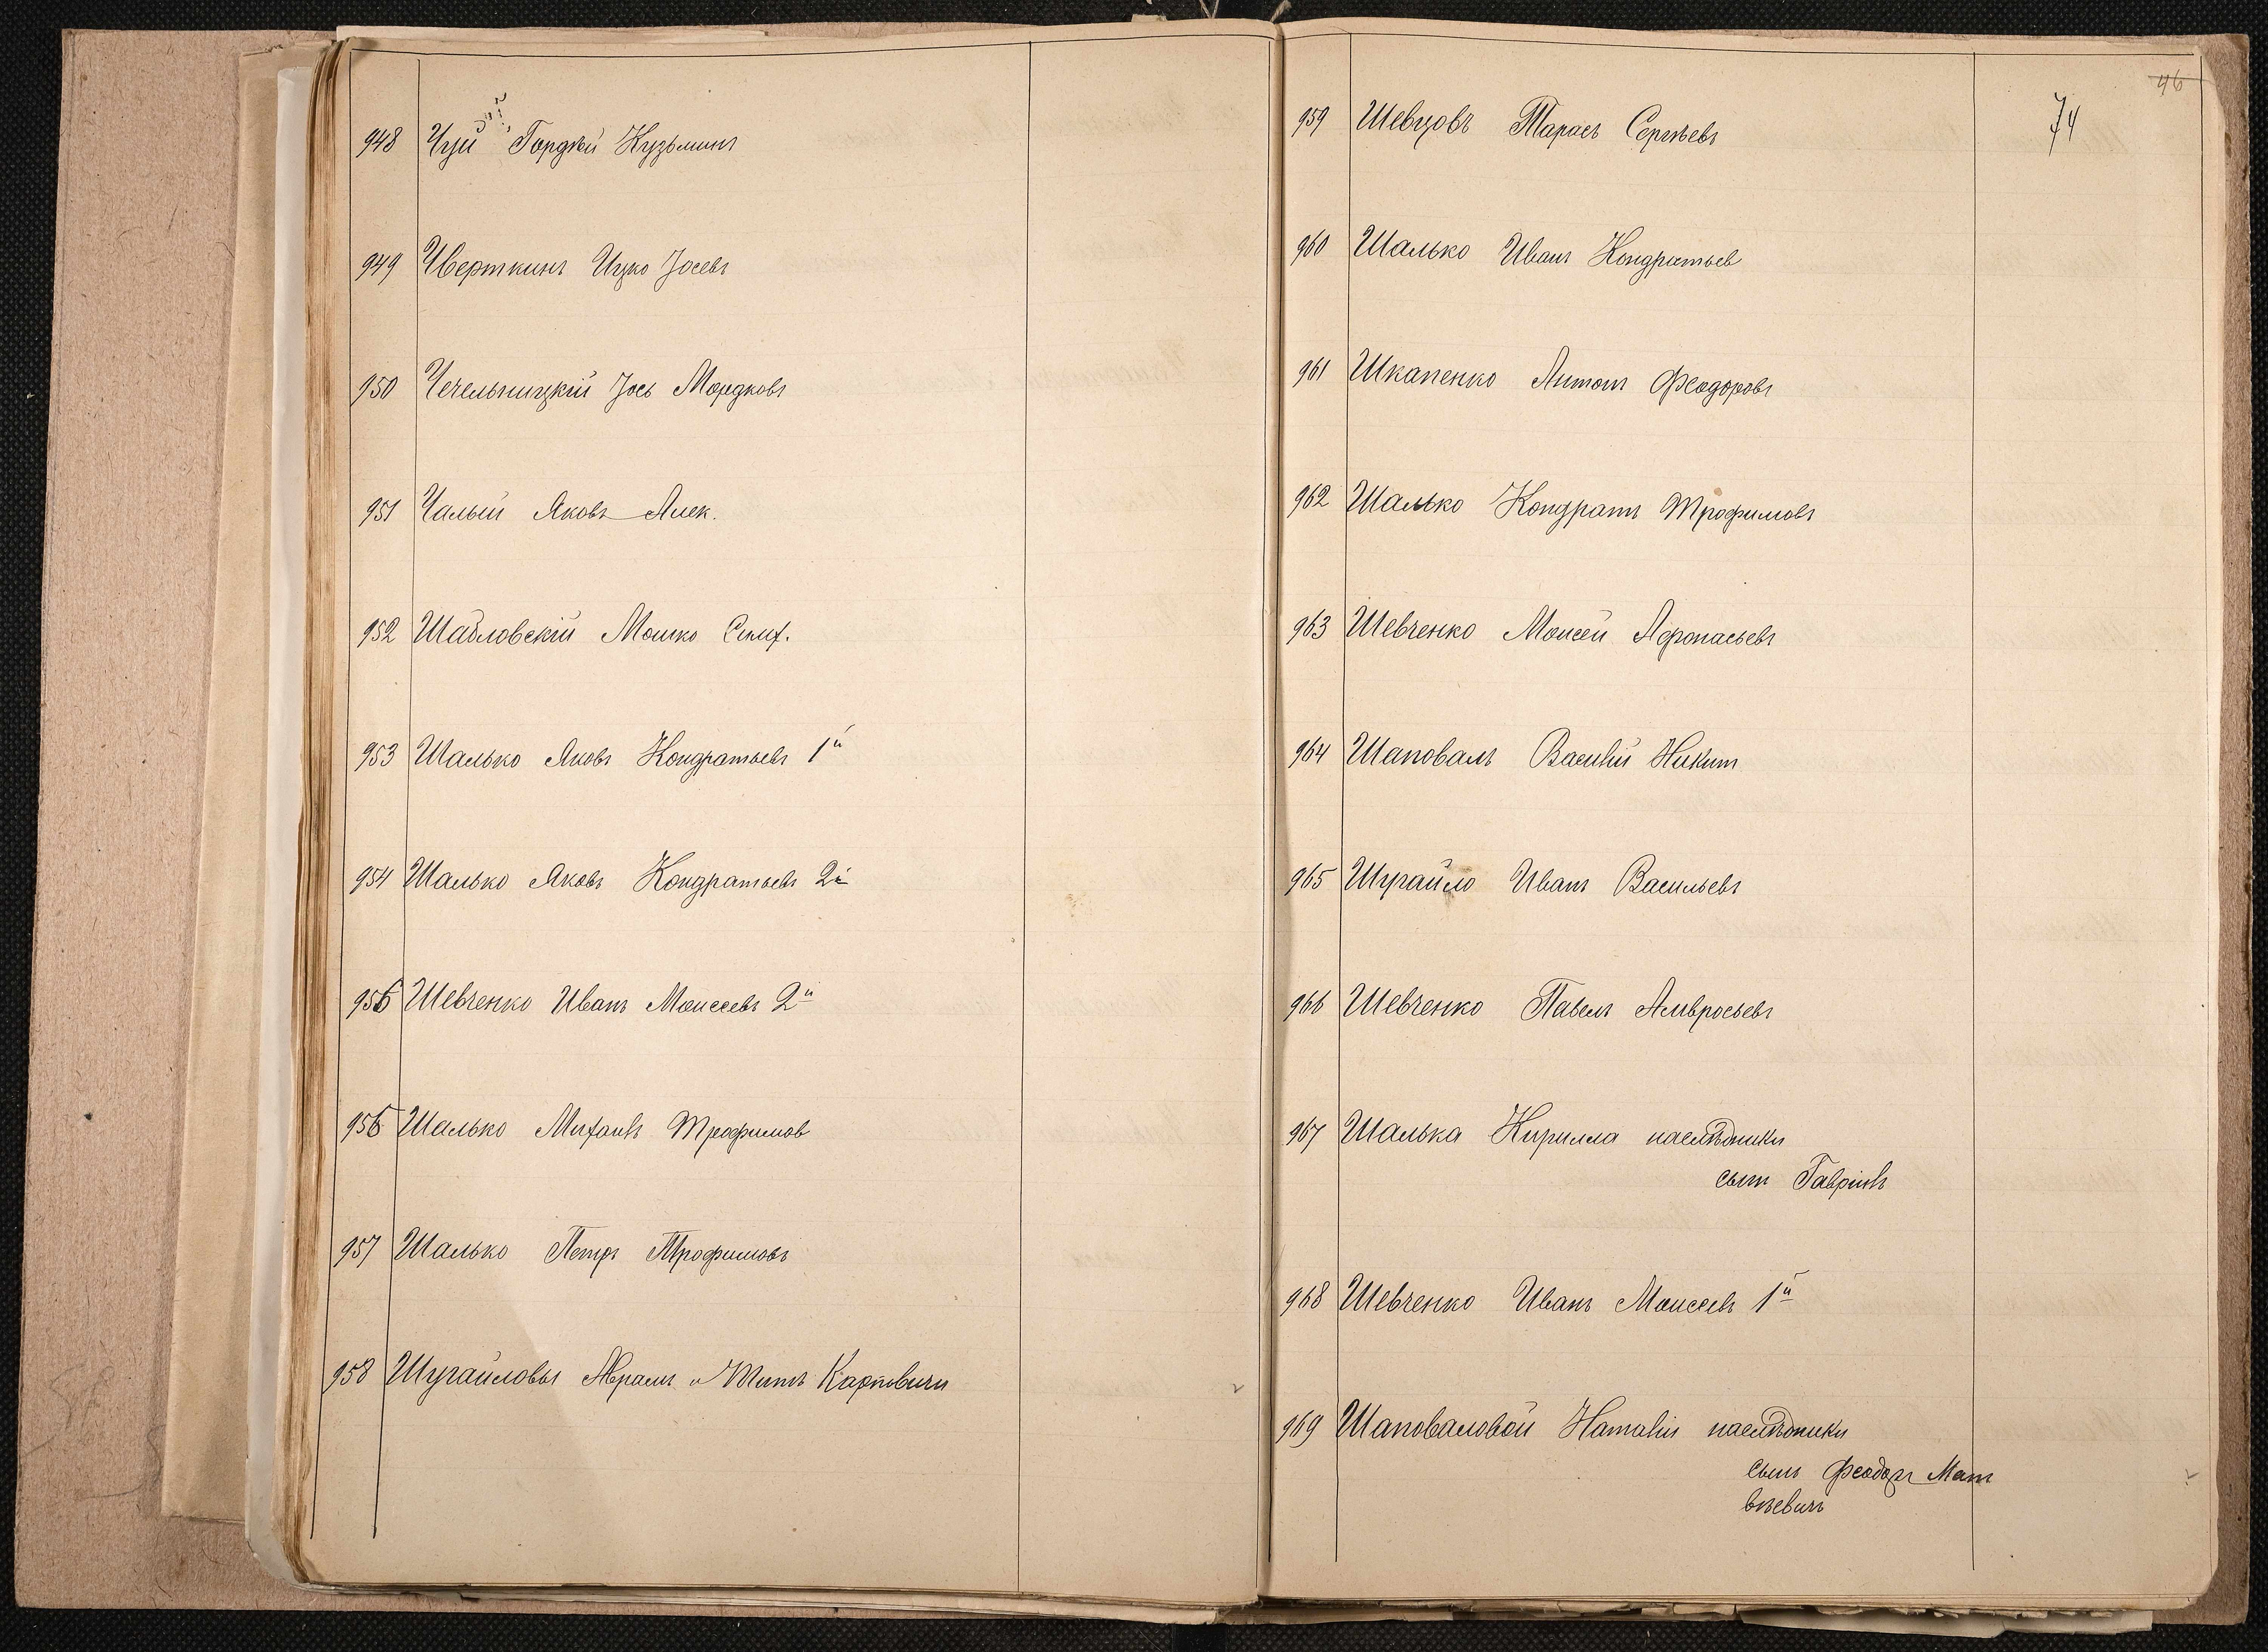 948 Чуй Гордѣй Кузьминъ
949 Чверткинъ Ицко Іосевъ
950 Чечельницкій Іось Мордковъ
951 Чалый Яковъ Алек.
952 Шабловскій Мошко
953 Шалько Яковъ Кондратьевъ 1й
954 Шалько Яковъ Кондратьевъ 2й
955 Шевченко Иванъ Моисеевъ 2й
956 Шалько Михаилъ Трофимов
957 Шалько Петръ Трофимовъ
958 Шугайловы Абрамъ и Титъ Карповичи
46
74
959 Шевцовъ Тарасъ Сергѣевъ
960 Шалько Иванъ Кондратьев
961 Шкапенко Антонъ Феодоровъ
962 Шалько Кондратъ Трофимовъ
963 Шевченко Моисей Афонасьевъ
964 Шаповалъ Василій Никит
965 Шугайло Иванъ Васильевъ
966 Шевченко Павелъ Амвросьевъ
967 Шалька Кирилла наслѣдники
сынъ Гавріилъ
968 Шевченко Иванъ Моисеевъ 1й
969 Шаповаловой Наталіи наслѣдники
сынъ Феодоръ Мат
вѣевичъ